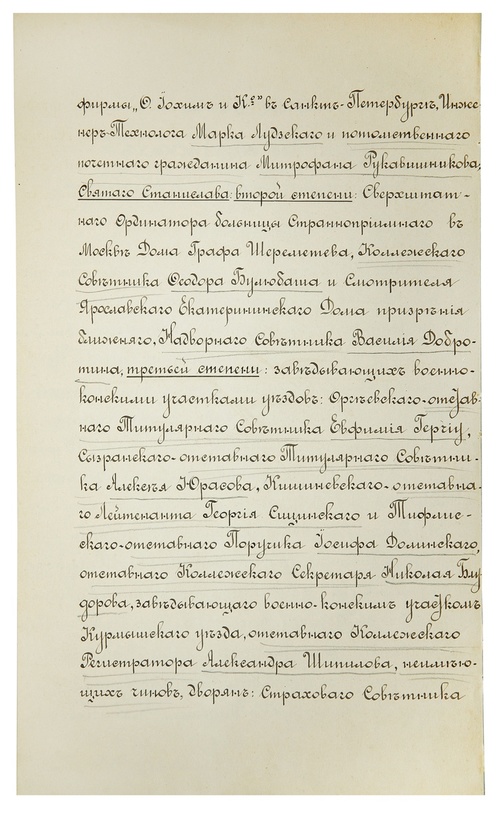 фирмы „О. Іохимъ и К.º" въ Санктъ-Петербургѣ, Инже-
неръ-Технолога Марка Лудзскаго и потомственнаго
почетнаго гражданина Митрофана Рукавишникова;
Святаго Станислава: второй степени: Сверхштат-
наго Ординатора больницы Страннопріимнаго въ
Москвѣ Дома Графа Шереметева, Коллежскаго
Совѣтника Ѳеодора Булюбаша и Смотрителя
Ярославскаго Екатерининскаго Дома призрѣнія
ближняго, Надворнаго Совѣтника Василія Добро-
тина; третьей степени: завѣдывающихъ военно-
конскими участками уѣздовъ: Оргѣевскаго-отстав-
наго Титулярнаго Совѣтника Евфимія Герчіу,
Сызранскаго-отставнаго Титулярнаго Совѣтни-
ка Алексѣя Юрасова, Кишиневскаго-отставна-
го Лейтенанта Георгія Сицинскаго и Тифлис-
скаго-отставнаго Поручика Іосифа Долинскаго,
отставнаго Коллежскаго Секретаря Николая
дорова, завѣдывающаго военно-конскимъ участкомъ
Курмышскаго уѣзда, отставнаго Коллежскаго
Регистратора Александра Шипилова, неимѣю-
щихъ чиновъ, дворянъ: Страховаго Совѣтника